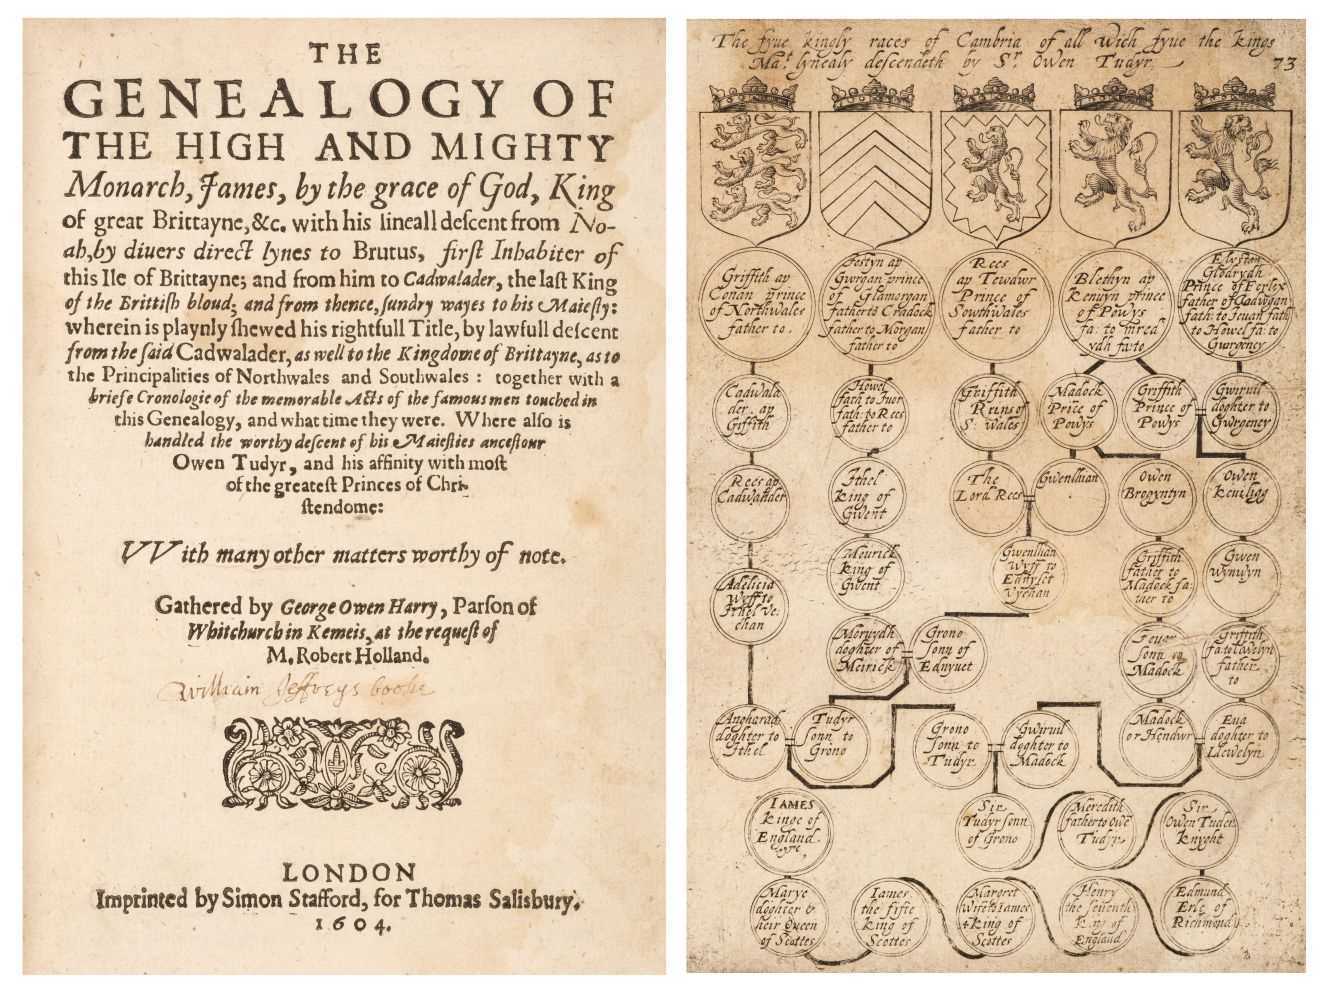 THE
GENEALOGY OF
THE HIGH AND MIGHTY
Monarch, James, by the grace of God, King
of great Brittayne, &c. with his lineall deſcent from No-
ah, by diuers direct lynes to Brutus, firſt Inhabiter of
this Ile of Brittayne; and from him to Cadwalader, the laſt King
of the Brittiſh bloud; and from thence, ſundry wayes to his Maieſty:
wherein is playnly ſhewed his rightfull Title, by lawfull deſcent
from the ſaid Cadwalader, as well to the Kingdome of Brittayne, as to
the Principalities of Northwales and Southwales : together with a
briefe Cronologie of the memorable Acts of the famous men touched in
this Genealogy, and what time they were. Where alſo is
handled the worthy deſcent of his Maieſties anceſtour
Owen Tudyr, and his affinity with moſt
of the greateſt Princes of Chri-
ſtendome:
VVith many other matters worthy of note.
Gathered by George Owen Harry, Parſon of
Whitchurch in Kemeis, at the requeſt of
M. Robert Holland.
William Jeffreys booke
LONDON
Imprinted by Simon Stafford, for Thomas Salisbury.
1604.
The fyue kingly races of Cambria of all wich fyue the kings
Ma.t lynealy descendeth by Sr. Owen Tudyr
73
Griffith ap
Conan prince
of Northwales
father to.
Jestyn ap
Gwrgan prince
of Glamorgan
father to Cradock
father to Morgan
father to
Rees
ap Tewdwr
Prince of
Sowthwales
father to
Blethyn ap
Kenuyn prince
of Powys
fa: to mred
ydh fa: to
Elyston
Glodrydh
Prince of Ferlex
father of Cadwgan
fath: to Jeuan fath
to Howel fa: to
Gwrgeney
Cadwala
der. ap
Griffith
Howel
fath to Juor
fath: to Rees
father to
Griffith
Prins of
S: wales
Madock
Price of
Powys
Griffith
Prince of
Powys
Gwiruil
doghter to
Gwrgeney
Rees ap
Cadwander
Ithel
King of
Gwent
The
Lord Rees
Gwenllian
Owen
Brogyntyn
Owen
keuiliog
Adelicia
Wyff to
Ithel Ve:
chan
Mourick
king of
Gwent
Gwenllian
Wyff to
Ednyfet
Vychan
Griffith
father to
Madock fa:
ther to
Gwen
Wynwyn
Moruydh
doghter of
Meirick
Grono
sonn of
Ednyuet
sonn to
Madock
Griffith
fa: to Llwelyn
father
to
Angharad
doghter to
Ithel
Tudyr
sonn to
Grono
Grono
sonn to
Tudyr
Gwiruil
doghter to
Madock
Madock
or Hendwr
Eua
doghter to
Llewelyn
IAMES
kinge of
England.
Sir
Tudyr sonn
of Grono
Meredith
father to Owē
Tudyr
Sir
Owen Tuder
knyght
Marye
doghter &
heir Queen
of Scottes
Iames
the fifte
king of
Scottes
Margret
Wife to Iames
4 king of
Scottes
Henry
the seuenth
King of
England
Edmund
Erle of
Richmond